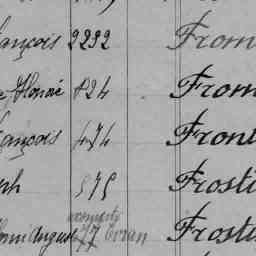 ançois 2292 From
Honoré 824 From
ançois 474 Front
ph 575 Frosti
Henri August 77 Evran Frosti